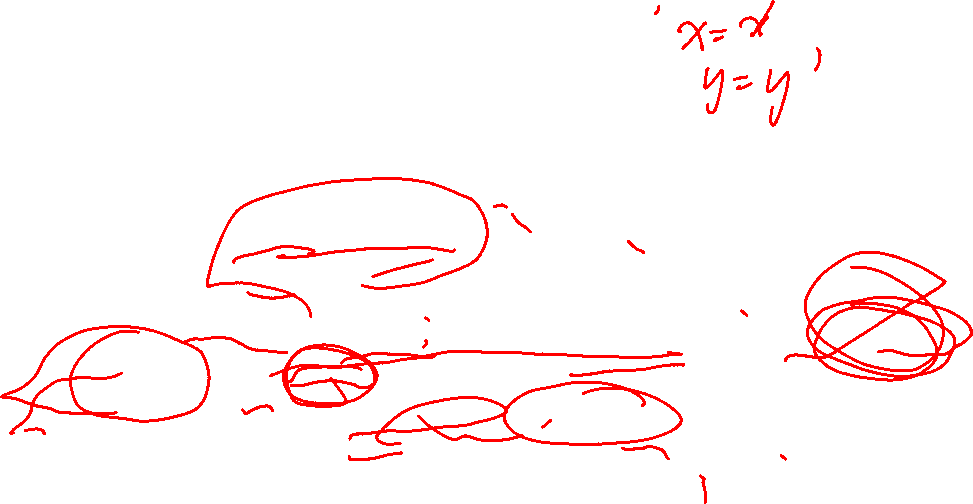 x = x
y = y'